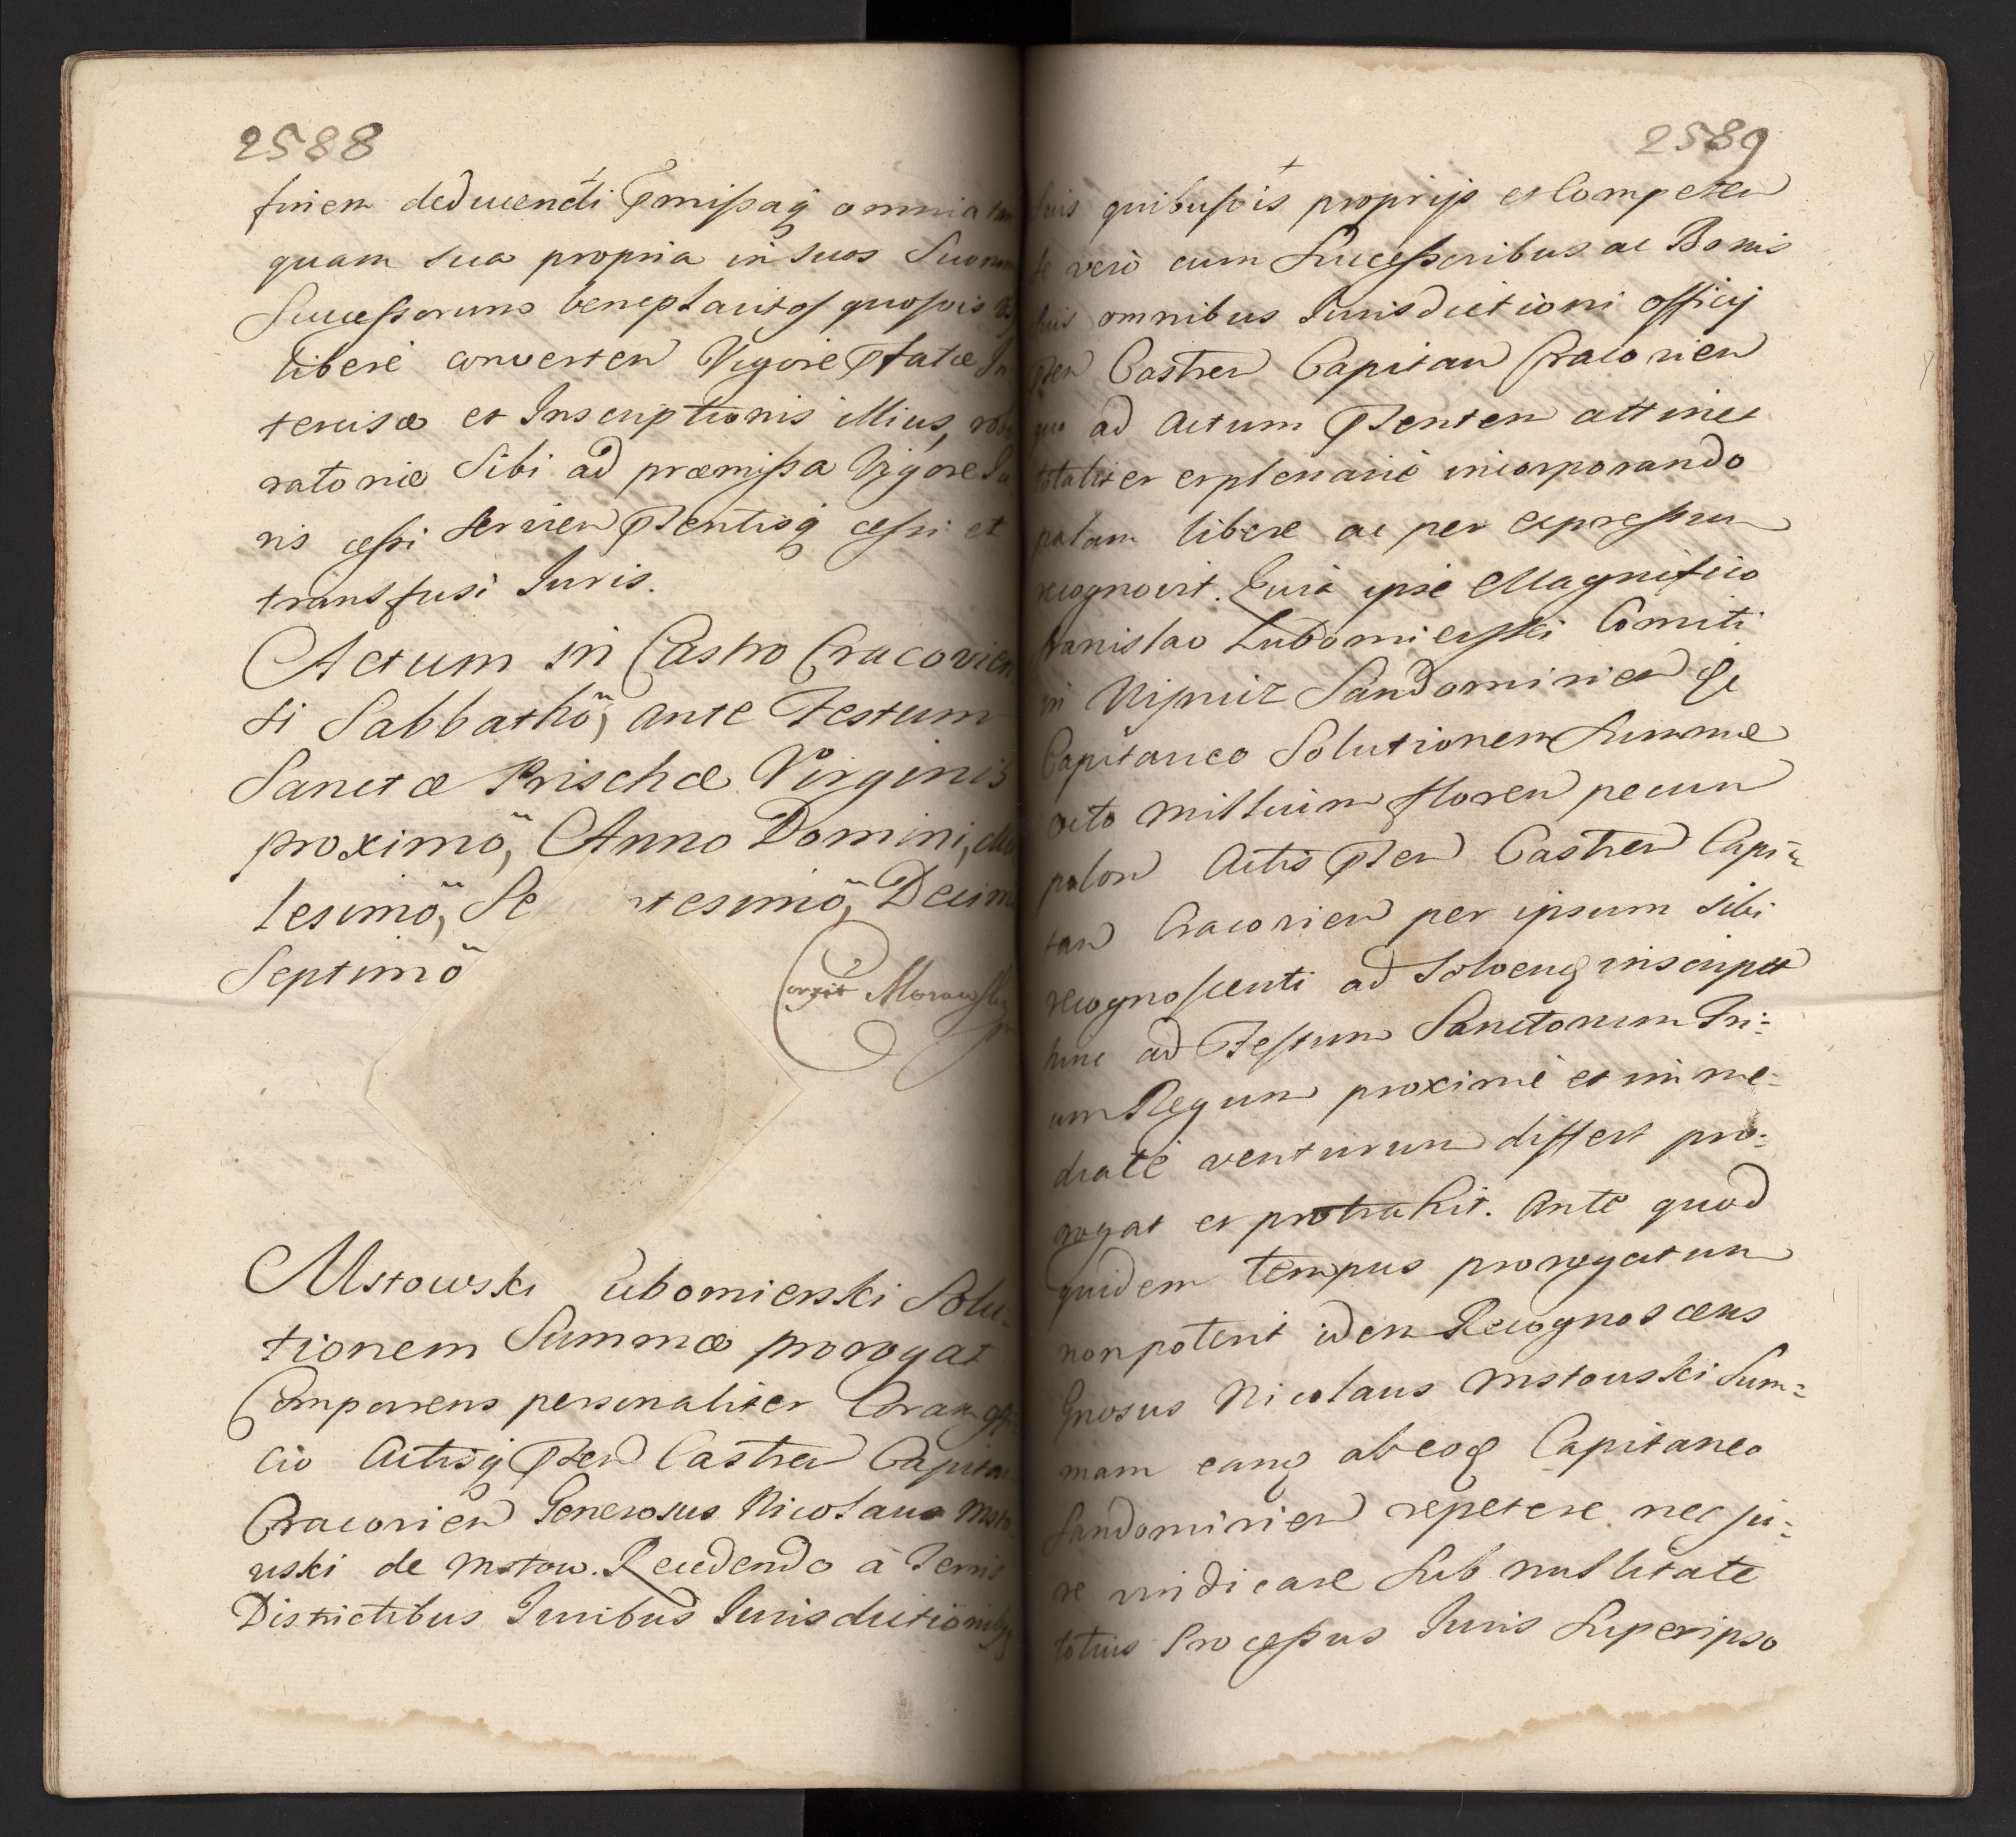 2588
finem deducendi Pmissaq omnia tan
quam sua propria in suos Suorum
Successorum beneplacitos quosvis
libere converten Vigore Pfatæ In
tercisæ et Inscriptionis illius, robo
ratoriæ Sibi ad præmissa Vigore Ju
ris cessi servien Psentisq cessi et
transfusi Juris.
Actum in Castro Cracovien
si Sabbathö, ante Festum
Sanctæ Prischæ Virginis
proximö, Anno Domini, Mil
lesimö, Se ntesimö, Decim
Septimö
Corrit Morawski
Mstowski Lubomierski Solu-
tionem Summæ prorogat
Comparens personaliter Coram offi
cio Actisq Psen Castren Capitan
Cracovien Generosus Nicolaus Msto
wski de Mstow. Recedendo à Terris
Districtibus Juribus Jurisdictionibq
2589
suis quibusvis proprijs et Competen
se verò cum Successoribus ac Bonis
suis omnibus Jurisdictioni officij
Psen Castren Capitan Cracovien
quo ad Actum Psenten attinet
totaliter et plenarie incorporando
palam libere ac per expressum
recognovit. Quia ipse Magnifico
Stanislao Lubomierski Comiti
in Wisnicz Sandomirien Ge
Capitaneo Solutionem Summæ
octo Millium floren pecun
polon Actis Psen Castren Capi=
tan Cracovien per ipsum sibi
recognoscenti ad Solvenq inscript
hinc ad Festum Sanctorum Tri=
um Regum proxime et imme=
diate venturum differt pro=
rogat et protrahit. Ante quod
quidem tempus prorogatum
non poterit idem Recognoscens
Gnosus Nicolaus Mstowski Sum=
mam eanq ab eoq Capitaneo
Sandomirien repetere nec ju=
re vindicare Sub nullitate
totius Processus Juris Superipso